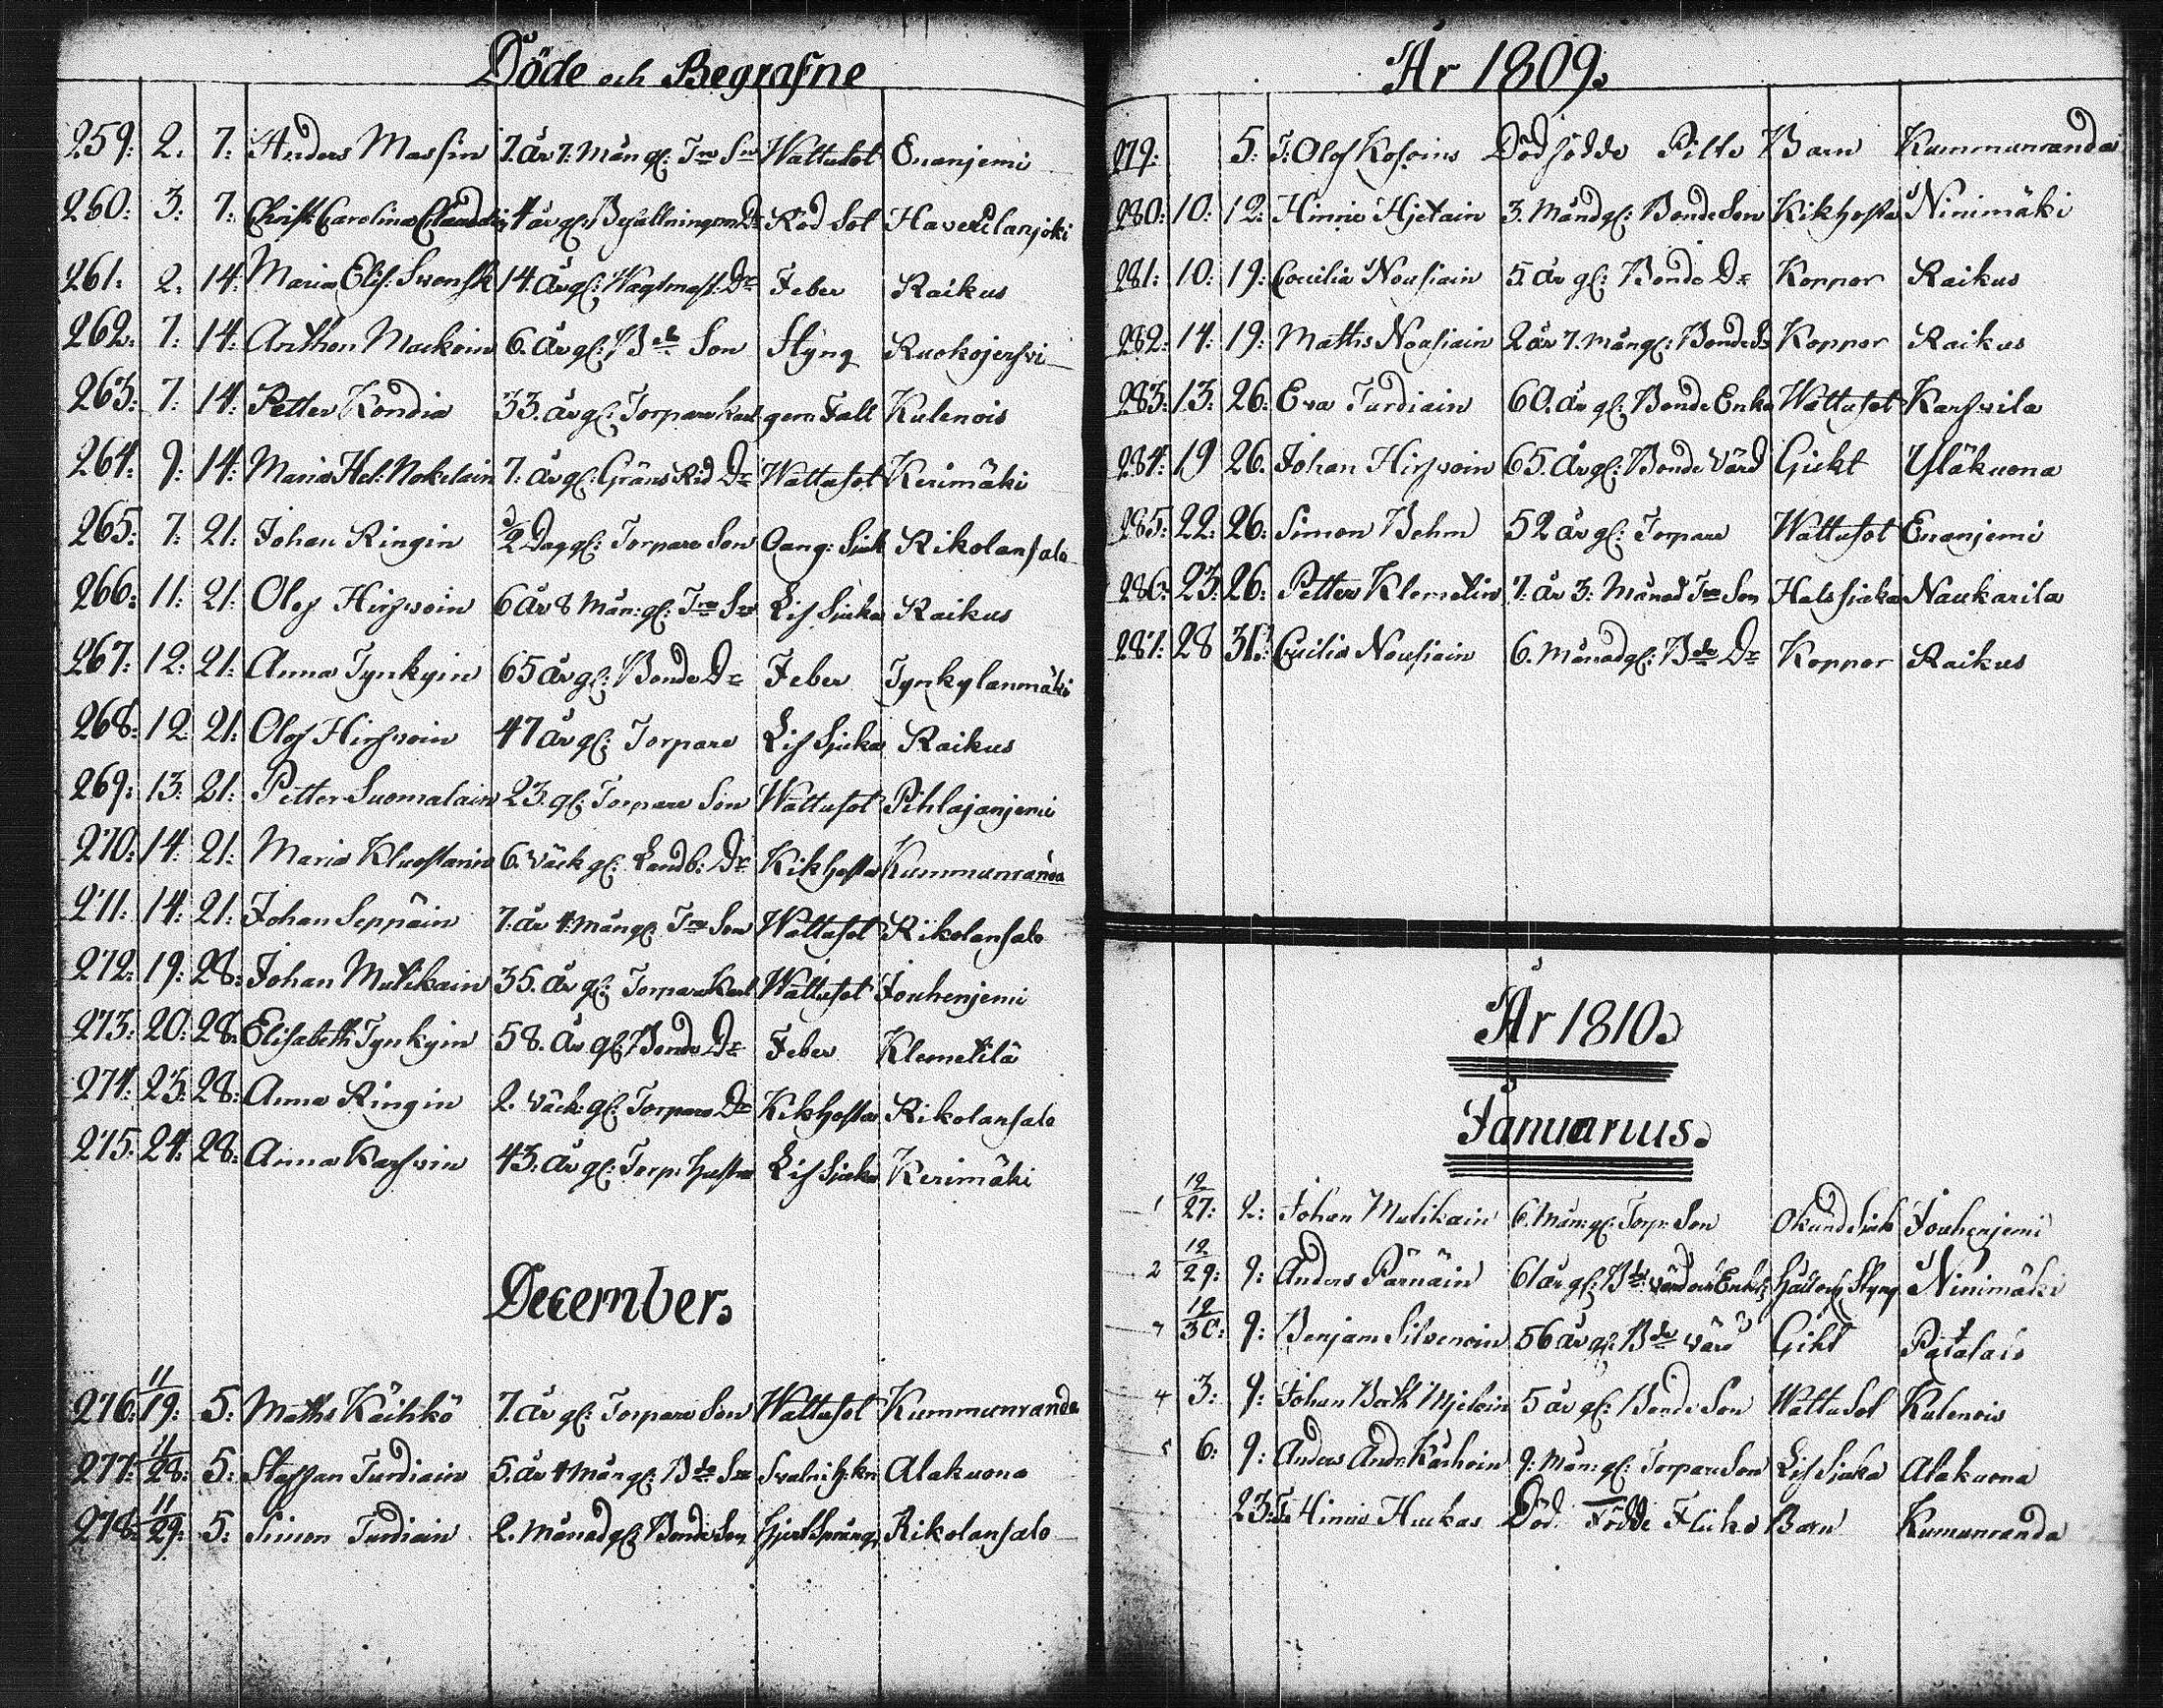 Döde och Begrafne
259: 2. 7. Anders Massin 7. år 7. Mån gl: Tre Sn Wattusot Enanjemi
260: 3: 7: Christ: Carolina 4 år gl: Befallningsm Dr Röd Sot Haverilanjoki
261. 2. 14: Maria Elis: Swensk 14. År gl: Wagtmast: Dr Feber Raikus
262: 7: 14: Anthon Mackoin 6. År gl: Bde Son Styng Ruokojerfvi
263: 7: 14: Petter Kondia 33. år gl: Torpare Karl gem Fall Kulenois
264: 9: 14: Maria Hel: Nokelain 7: År gl: Gräns Rid Dr Wattusot Kerimäki
265: 7: 21: Johan Ringin Dag gl: Torpare Son Oang: Sjuk Rikolansalo
266: 11: 21: Olof Hirfvoin 6 År 8 Mån: gl: Tre Sn Lif Sjuka Raikus
267: 12: 21: Anna Tynkyin 65 år gl: Bonde Dr Feber Tynkylänmäki
268: 12 21: Olof Hirfvoin 47 år gl: Torpare Lif Sjuka Raikus
269: 13: 21: Petter Suomalain 23. gl: Torpare Son Wattusot Pihlajanjemi
270: 14: 21: Maria 6. Väck gl: Landb: Dr Kikhosta Kummunranda
271: 14: 21: Johan Seppäin 7. år 4. Mån gl: Tre Son Wattusot Rikolansalo
272: 19: 28: Johan Mutikain 35. År gl: Torpare Karl Wattusot Jouhenjemi
273: 20: 28. Elisabeth Tynkyin 58. År gl: Bonde Dr Feber Klemetilä
274: 23: 28: Anna Ringin 2. Väck: gl: Torpare Dr Kikhosta Rikolansalo
275: 24: 28: Anna Karfvin 43. År gl: Torp: hustru Lif Sjuka Kerimäki
December.
276: 11/19: 5: Maths Käihkö 7. år gl: Torpare Son Wattusot Kummunranda
277: 11/28: 5: Staffan Turdiain 5. år 4 Mån gl: Bde Sn Alakuona
278: 11/29: 5: Simon Turdiain 2. Månad gl: Bonde Son Rikolansalo
År 1809.
279: 5: T: Olof Kosoins Död födde Pilts Barn Kummunranda
280: 10: 12: Hinric Hjetain 3. Månd gl: Bonde Son Kikhosta Ninimäki
281: 10: 19: Cecilia Nousiain 5. År gl: Bonde Dr Koppor Raikus
282: 14: 19: Maths Nousiain 2 år 7. Mån gl: Bonde Sn Koppor Raikus
283: 13: 26: Eva Turdiain 60. År gl: Bonde Enka Wattusot Karfvila
284: 19 26. Johan Hirfvoin 65. År gl: Bonde Värd Gickt Yläkuona
285: 22: 26: Simon Behm 52 år gl: Torpare Wattusot Enanjemi
286: 23: 26: Petter Klemetin 7. år 3: Månad Tre Son Halssjuka Naukarila
287: 28 31: Cecilia Nousiain 6. Månad gl: Bde Dr Koppor Raikus
År 1810.
Januarius.
1 12/27: 2: Johan Mutikain 6. Mån: gl: Torp: Son Okänd Sjuk Jouhenjemi
2 12/29: 9: Anders Pärnäin 61 år gl: Bde Värd och Enkl: Håll och Styng Ninimäki
3 12/30: 9: Benjam Silvenoin 56 år gl: Bde Värd Gikt Patasalo
4 3: 9: Johan Mjeloin 5 år gl: Bonde Son Wattusot Kulenois
5 6: 9: Anders Andr: Kärhoin 9. Mån: gl: Torpare Son Lif Sjuka Alakuona
23: T: Hinric Huckas Död Födde Flicko Barn Kumunranda